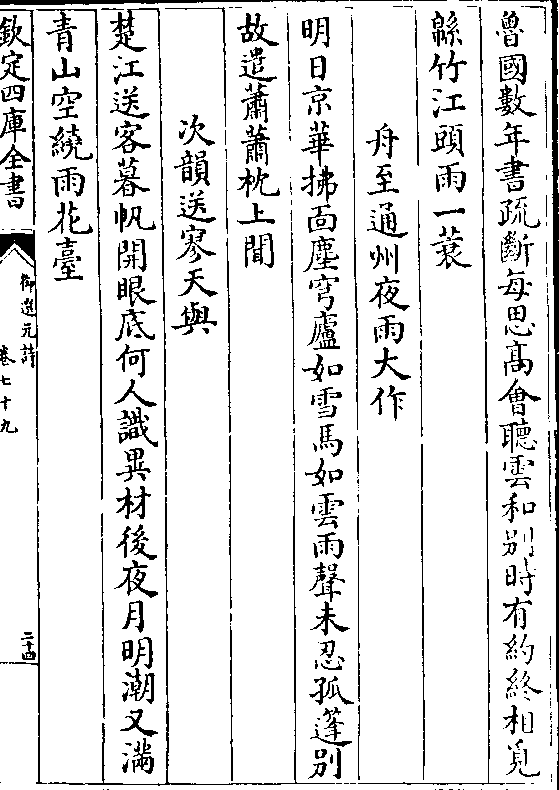 魯國數年書疏斷每思髙會聽雲和别時有約終相覓
緜竹江頭雨一蓑
舟至通州夜雨大作
明日京華拂面塵穹廬如雪馬如雲雨聲未忍孤蓬别
故遣蕭蕭枕上聞
次韻送寥天與
楚江送客暮帆開眼底何人識異材後夜月明潮又滿
青山空繞雨花臺
欽定四庫全書
御選元詩
卷七十九
二十四